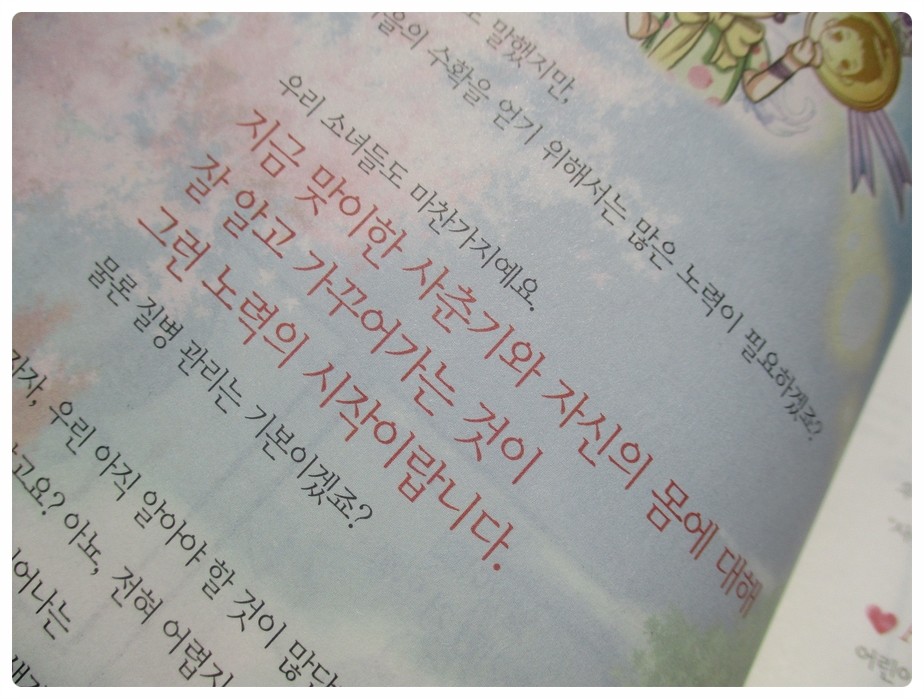 도 말했지만,
가을의 수확을 얻기 위해서는 많은 노력이 필요하겠죠?
우리 소녀들도 마찬가지예요.
지금 맞이한 사춘기와 자신의 몸에 대해
잘 알고 가꾸어가는 것이
그런 노력의 시작이랍니다.
물론 질병 관리는 기본이겠죠?
자, 우린 아직 알아야 할 것이 많답
고요? 아뇨, 전혀 어렵지
어나는
어린이